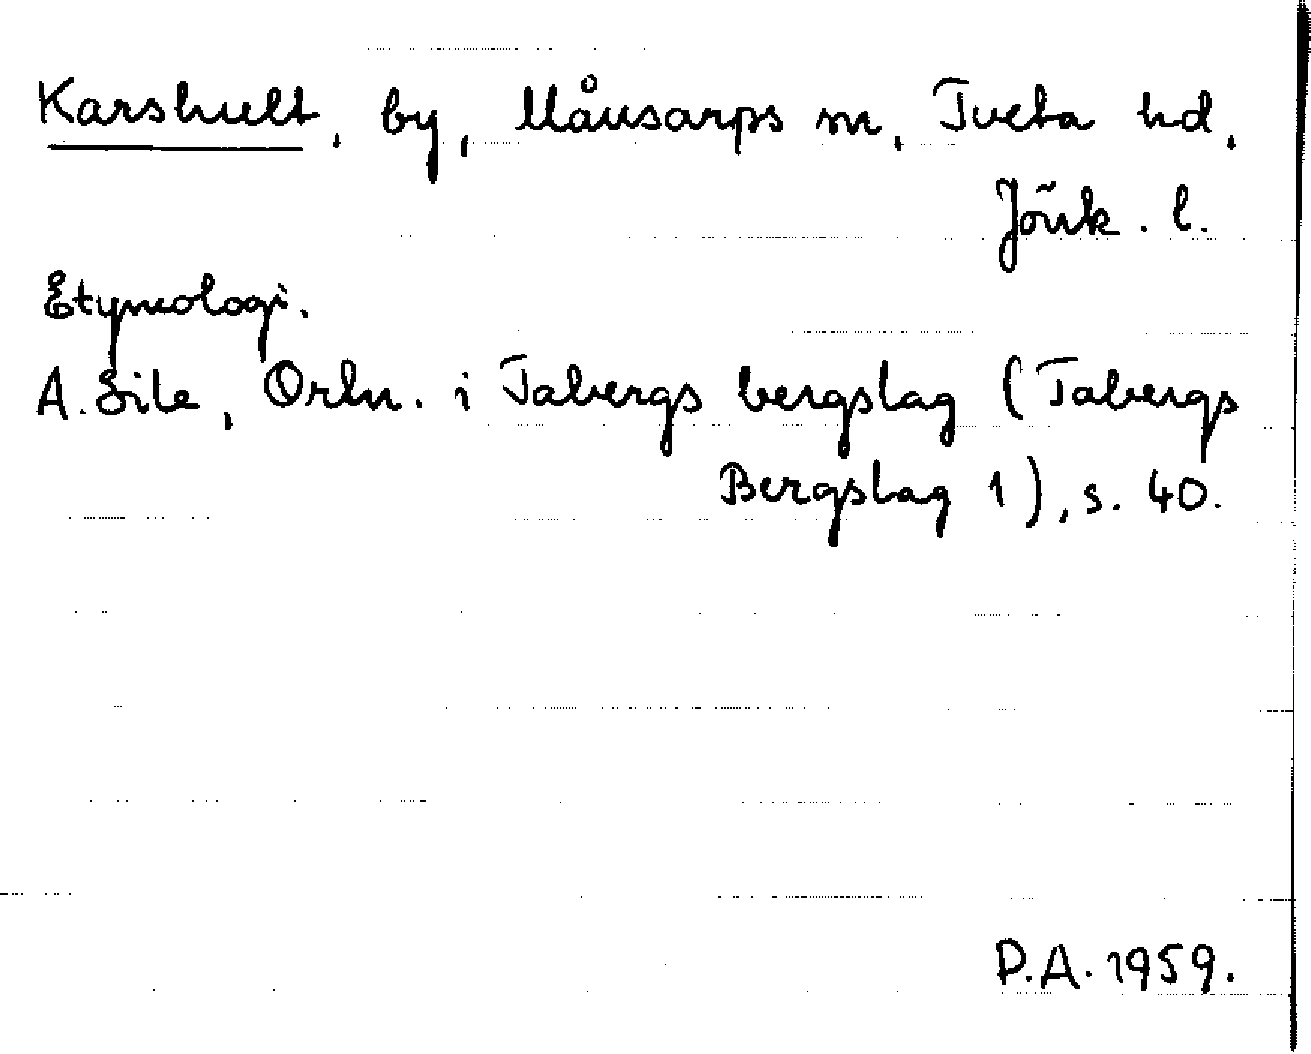 Karshult, by, Månsarps sn, Tveta hd,
Jönk. l.
Etymologi.
A. Lile, Ortn. i Tabergs bergslag (Tabergs
Bergslag 1), s. 40.
P.A. 1959.